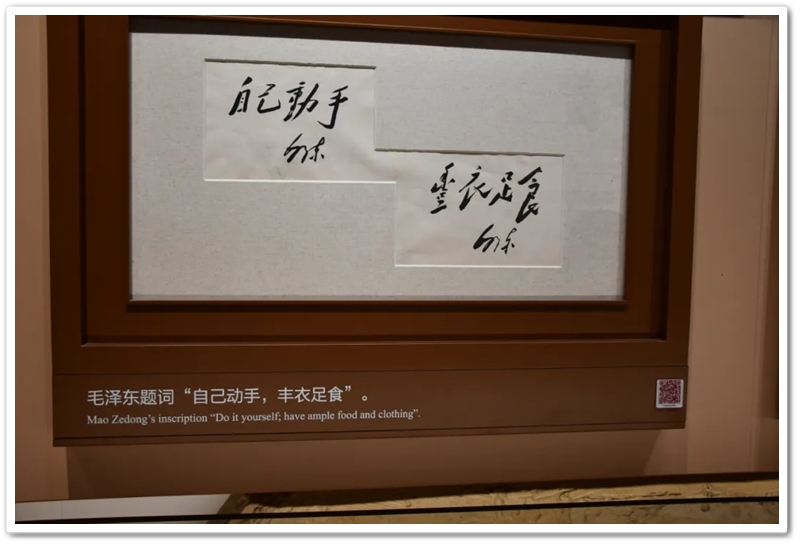 自己動手
毛澤东
豐衣足食
毛澤东
毛泽东题词“自己动手，丰衣足食”。
Mao Zedong’s inscription “Do it yourself; have ample food and clothing”.